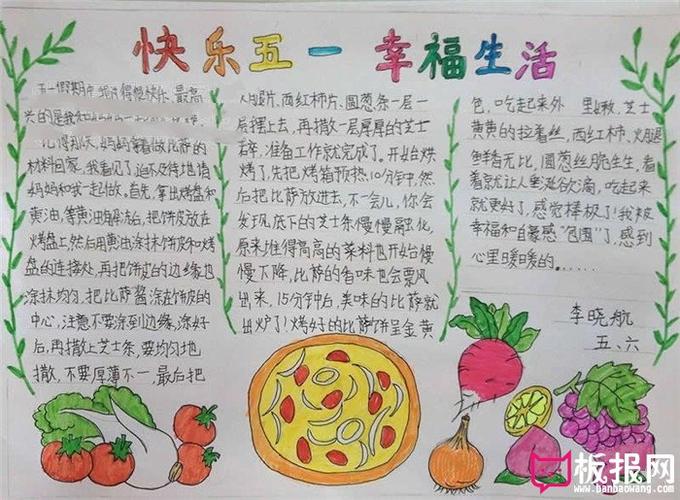 快乐五一 幸福生活
五一假期中我过得很快乐,最高
兴的是我和
儿得那天,妈妈拿着做比萨的
材料回家,我看见了,迫不及待地请
妈妈和我一起做。首先,拿出烤盘和
黄油,等黄油解冻后,把饼皮放在
烤盘上,然后用黄油涂抹饼皮和烤
盘的连接处,再把饼皮的边缘也
涂抹均匀。把比萨酱涂在饼皮的
中心,注意不要涂到边缘,涂好
后,再撒上芝士条,要均匀地
撒,不要厚薄不一,最后把
火腿片、西红柿片、圆葱条一层一
层摆上去,再撒一层厚厚的芝士
碎,准备工作就完成了。开始烘
烤了,先把烤箱预热10分钟,然
后把比萨放进去,不一会儿,你会
发现,底下的芝士条慢慢融化,
原来堆得高高的菜料也开始慢
慢下降,比萨的香味也会飘风
出来,15分钟后,美味的比萨就
出炉了!烤好的比萨饼呈金黄
包,吃起来外 里嫩,芝士
黄黄的拉着丝,西红柿、火腿
鲜香无比,圆葱丝脆生生,看
着就让人垂涎欲滴,吃起来
就更好了,感觉棒极了!我被
幸福和自豪感“包围”了,感到
心里暖暖的。……
李晓航
五、六
板报网
www.banbaowang.com